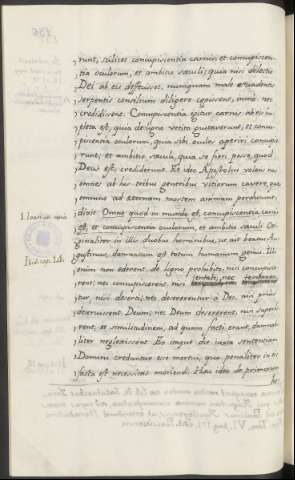 runt, scilicet concupiscentia carnis et concupiscen-
tia oculorum, et ambitio saeculi; quia nisi dilectio
Dei ab eis deffuisset, nunquam male suadentis
serpentis consilium diligere coepissent, immo nec
credidissent. Concupiscentia igitur carnis ab eis im-
pleta est, quia de ligno vetito gustaverunt, et concu-
piscentia oculorum, quia sibi oculos aperiri concupi-
runt; et ambitio saeculi, quia se fieri posse, quod
Deus est, crediderunt. Et ideo Apostolus volens nos
omnes ab his tribus generibus vitiorum cavere, quae
omnino ad aeternam mortem animam perducunt,
dixit: Omne quod in mundo est, concupiscentia carnis
est, et concupiscentia oculorum, et ambitio saeculi. Ori-
ginaliter in illis duobus hominibus, ut ait beatus Au-
gustinus, damnatum est totum humanum genus. Illi
enim non ederent de ligno prohibito, nisi concupisce-
rent; nec concupiscerent, nisi tentati;
nisi deserti; nec desererentur a Deo, nisi prius
deseruissent Deum; nec Deum desererent, nisi superbi-
rent, et similitudinem, ad quam facti erant, damnabi-
liter neglexissent. Eo itaque die iuxta sententiam
Domini creduntur esse mortui, quo poenaliter in eis
facta est necessitas moriendi. Haec ideo de primorum